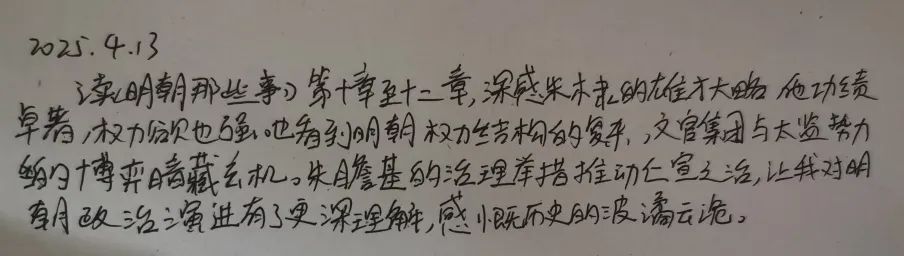 2025.4.13
读《明朝那些事》第十章至十二章,深感朱棣的雄才大略 他功绩
卓著,权力欲也强。也看到明朝权力结构的复杂,文官集团与太监势力
的博弈暗藏玄机。朱瞻基的治理举措推动仁宣之治,让我对明
朝政治演进有了更深理解,感慨历史的波谲云诡。